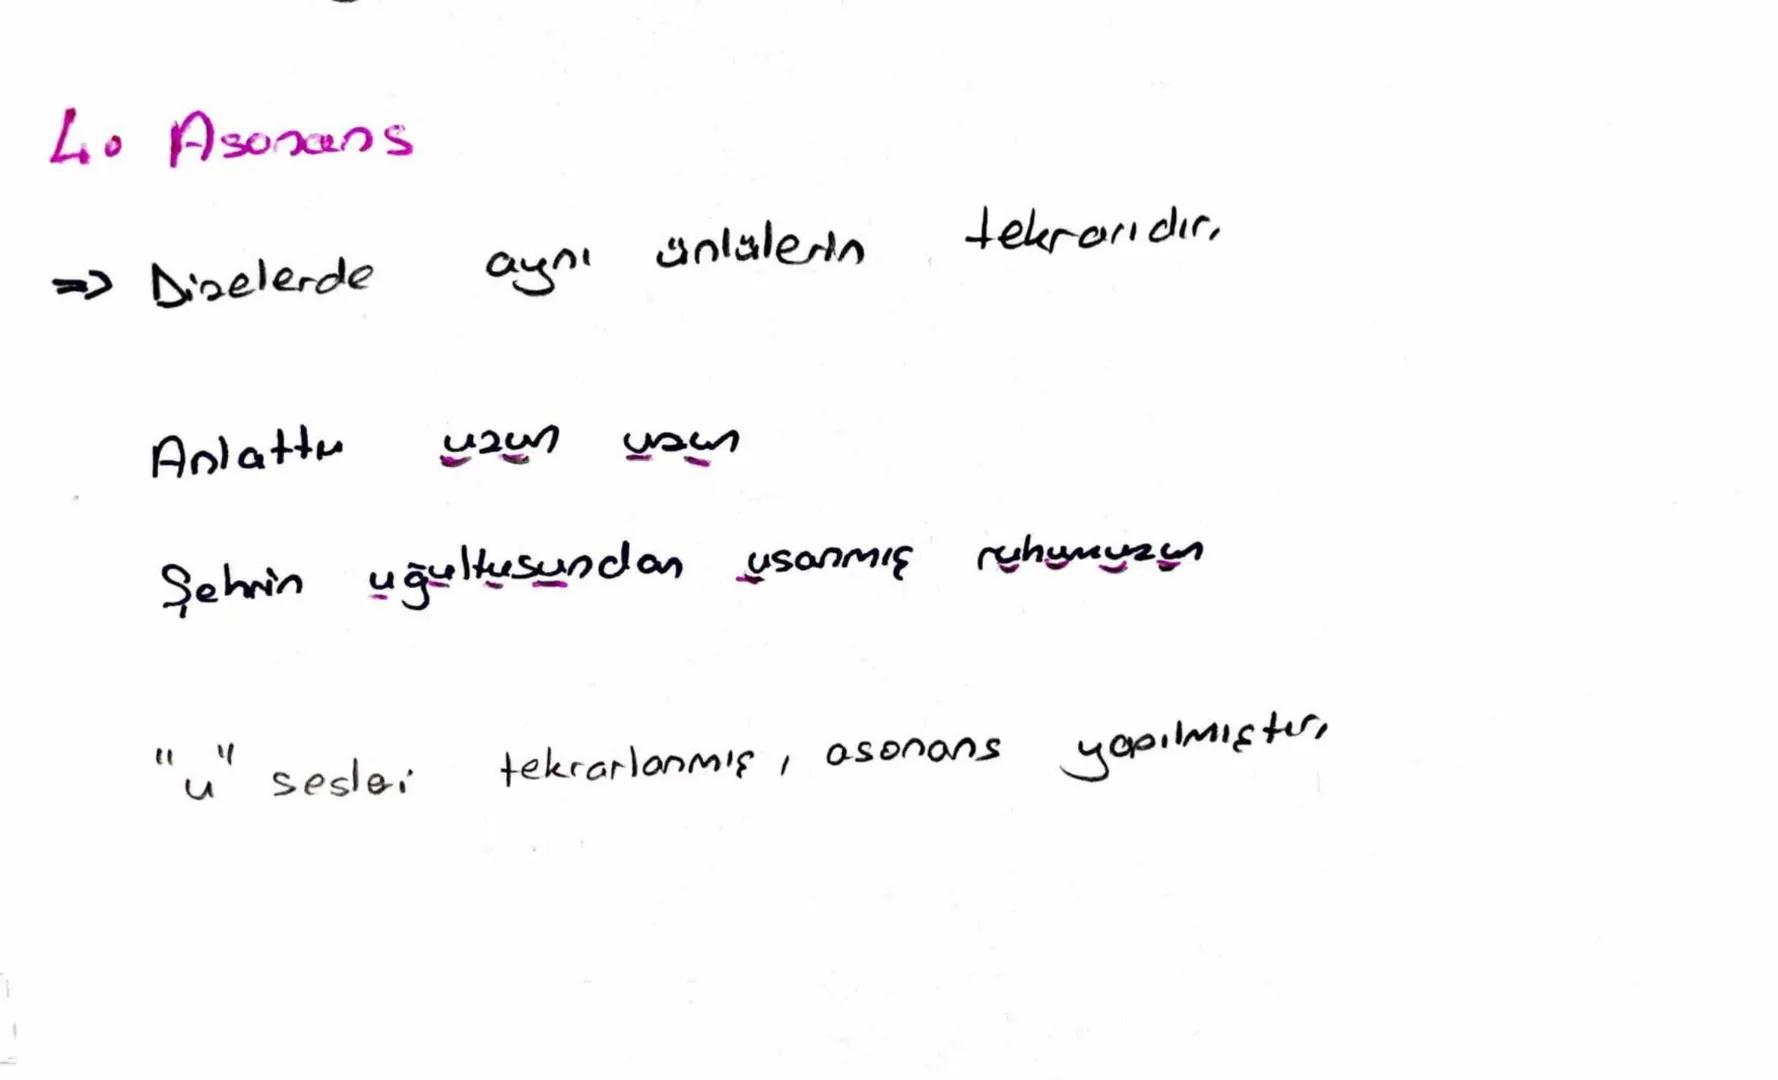 4. Asonans
=> Dizelerde aynı ünlülerin tekrarıdır.
Anlattı uzun uzun
Şehrin uğultusundan usanmış ruhumuzun
"u" sesleri tekrarlanmış, asonans yapılmıştır.